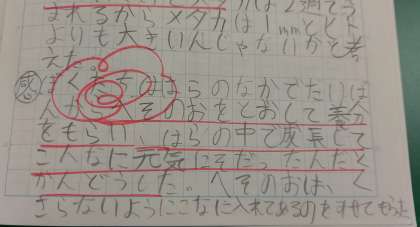 まれるからメダカは1mmとヒト
よりも大きいんじゃないかと考
えた。
感 ぼくたちははらのなかでたいば
んからへそのおをとおして養分
をもらい、はらの中で成長して
こんなに元気にそだったんだと
かんどうした。へそのおは、く
さらないようにこなに入れてあるのを見せてもらった